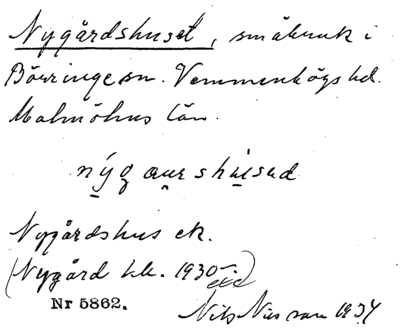 Nygårdshuset, småbruk i
Börringe sn. Vemmenhögs hd.
Malmöhus län.
Nygårdshus ek.
(Nygård hk. 1930
Nr 5862.
Nils Nilsson 1934